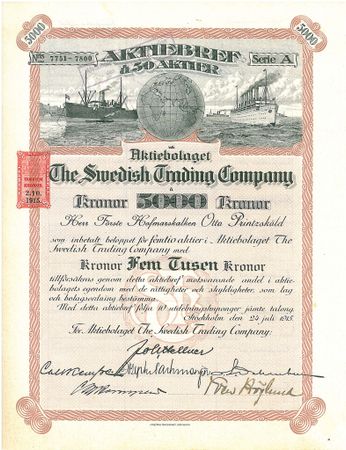 5000
5000
AKTIEBREF
Nos 7751 - 7800
Serie A
à 50 AKTIER
å
Aktiebolaget
The Swedish Trading Company
à
Kronor 5000 Kronor
Herr Förste Hofmarskalken Otto Printzsköld
som inbetalt beloppet för femtio aktier i Aktiebolaget The
Swedish Trading Company med
Kronor Fem Tusen Kronor
tillförsäkras genom detta aktiebref motsvarande andel i aktie-
bolagets egendom med de rättigheter och skyldigheter, som lag
och bolagsordning bestämma.
Med detta aktiebref följa 10 utdelningskuponger jämte talong.
Stockholm den 24 juli 1915.
För Aktiebolaget The Swedish Trading Company:
2.10.
1915.